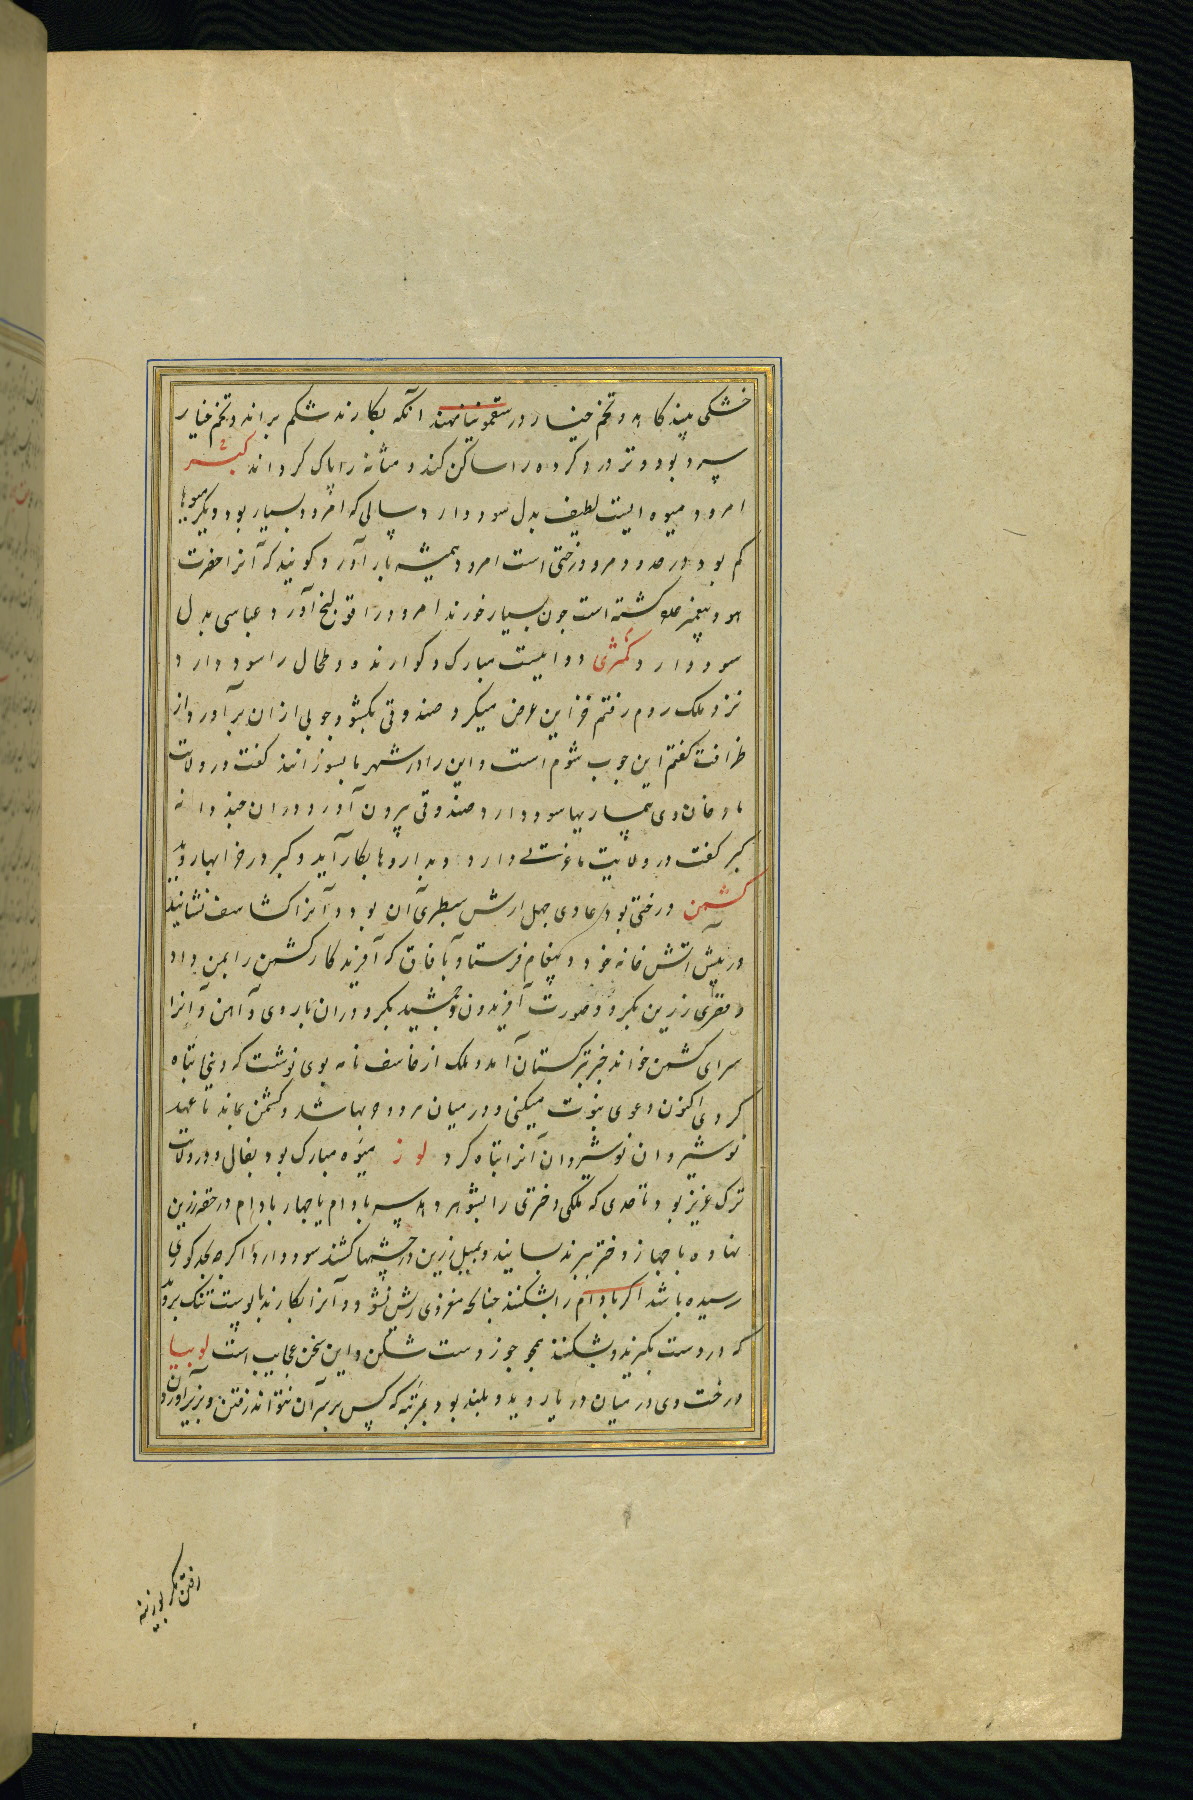 خشکی پیند کاهد و تخم خیار در سقمونیا نهند آنکه بکارند شکم براند و تخم خیار
سرد بود و تر درد کرده را ساکن کند و مثانه را پاک کرداند کمثر
امرود میوه ایست لطیف بدل سود دارد سالی که امرود بسیار بود دیکر میوها
کم بود در حدود مرو درختی است امرود همیشه بار آورد کویند که آنرا حضرت
هود پیغمبر کشته است جون بسیار خورند امرود را قولنج آورد عباسی بدل
سود دارد کمثری دوا ییست مبارک و کوارنده و طحال را سود دارد
نزد ملک روم رفتم خزاین عرض میکرد صندوقی بکشود جوبی از ان برآورد از
ظرافت کفتم این جوب شوم است و این را در شهر ما بسوزانند کفت در ولایت
ما دخان وی بیماریها سود دارد صندوقی بیرون آورد در ان جند دانه
کبر کفت در ولایت ما عزتی دارد و بداروها بکار آید و کبر در خرابها روید
کشمن درختی بود عادی جهل ارش سطبری آن بود و آنرا کشاسف نشانید
در پیش آتش خانه خود و پیغام فرستاد بآفاق که آفریدکار کشمن را بمن داد
و مقری زرین بکرد و صورت آفریدون و جمشید بکرد در ان باروی و آهن و آنرا
سرای کشمن خواند خبر بترکستان آمد و ملک ارخاسف نامه بوی نوشت که دینی تباه
کردی اکنون دعوی نبوت میکنی و در میان مرد و حربها شد و کشمن بماند تا عهد
نوشیروان نوشیروان آنرا تباه کرد لوز میوه مبارک بود بفال و در ولایت
ترک عزیز بود تا حدی که ملکی دختری را بشوهر دهد سه بادام یا جهار بادام در حقه زرین
نهاده با جهاز دختر ببرند بسایند و بمیل زرین در چشمها کشند سود دارد اکرجه بحد کوری
رسیده باشد اکر بادام را بشکنند جنانکه مغزوی ریش نشود و آنرا بکارند با پوست تنک بروید
که در دست بکیرند و بشکنند همجو جوز دست شکن و این سخن عجایب است لوبیا
درخت وی در میان دریا روید و بلند بود بمرتبه که کس بر سر آن نتواند رفتن و بزیر آوردن
رفتن مکر بوزینه